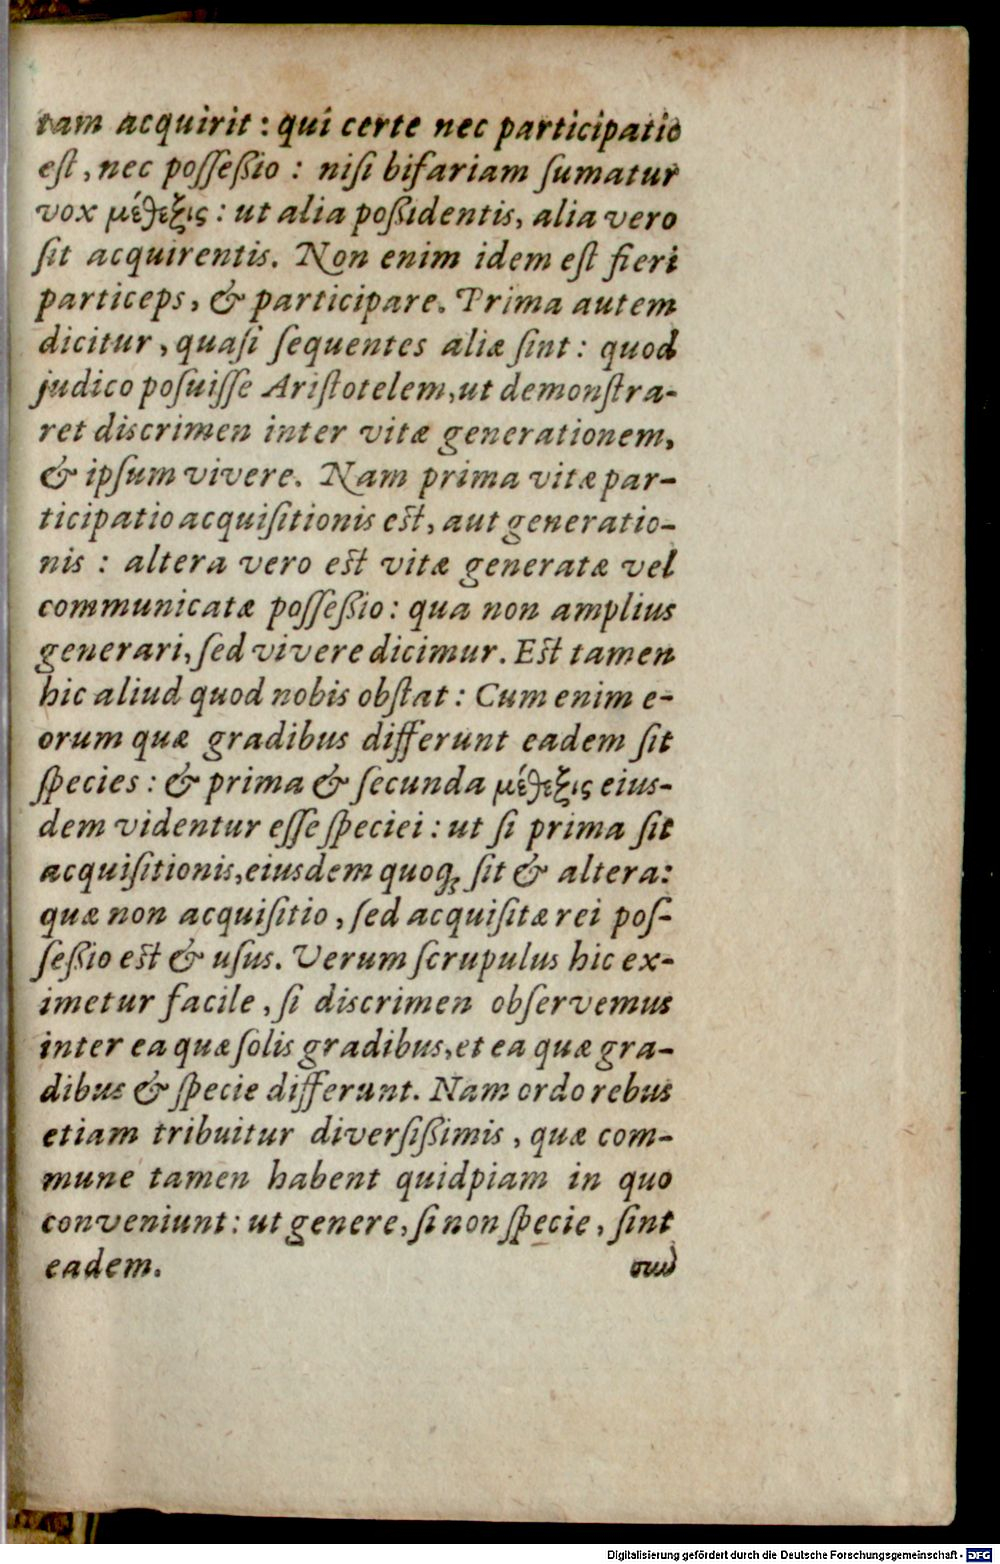 tam acquirit: qui certe nec participatio
eſt, nec poſſeßio: niſi bifariam ſumatur
vox μέθεξις: ut alia poßidentis, alia vero
ſit acquirentis. Non enim idem eſt fieri
particeps, & participare. Prima autem
dicitur, quaſi ſequentes aliæ ſint: quod
judico poſuiſſe Ariſtotelem, ut demonſtra-
ret discrimen inter vitæ generationem,
& ipſum vivere. Nam prima vitæ par-
ticipatio acquiſitionis eſt, aut generatio-
nis: altera vero eſt vitæ generatæ vel
communicatæ poſſeßio: qua non amplius
generari, ſed vivere dicimur. Eſt tamen
hic aliud quod nobis obſtat: Cum enim e-
orum quæ gradibus differunt eadem ſit
ſpecies: & prima & ſecunda μέθεξις eius-
dem videntur eſſe ſpeciei: ut ſi prima ſit
acquiſitionis, eiusdem quoq; ſit & altera:
quæ non acquiſitio, ſed acquiſitæ rei poſ-
ſeßio eſt & uſus. Verum ſcrupulus hic ex-
imetur facile, ſi discrimen obſervemus
inter ea quæ ſolis gradibus, et ea quæ gra-
dibus & ſpecie differunt. Nam ordo rebus
etiam tribuitur diverſißimis, quæ com-
mune tamen habent quidpiam in quo
conveniunt: ut genere, ſi non ſpecie, ſint
eadem.
Digitalisierung gefördert durch die Deutsche Forschungsgemeinschaft - DFG